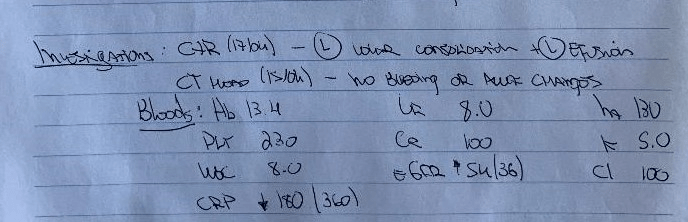 Investigations: CXR (17/04) - Ⓛ lower consolidation + Ⓛ Effusion
CT Head (15/04) - no bleeding or acute changes
Bloods: Hb 13.4 Ur 8.0 Na 130
PLT 230 Cr 100 K 5.0
WCC 8.0 eGFR ↑ 54 (36) Cl 100
CRP ↓ 180 (360)